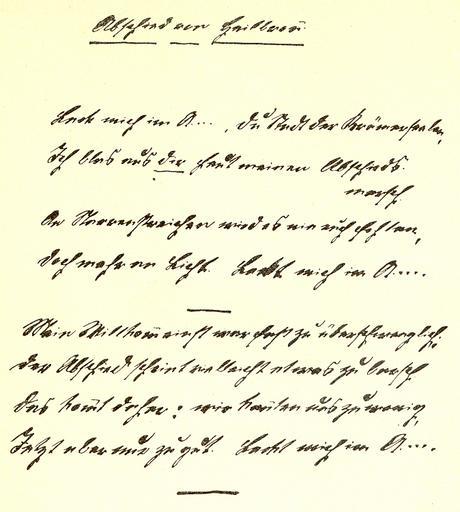 Abschied von Heilbron̄
Leck mich im A...., du Stadt der Krämerseelen,
Ich blas aus dir heut meinen Abschieds-
marsch
An Narrenstreichen wird es nie euch fehlen,
Doch mehr an Licht. Leckt mich im A....
Mein Willkom̄ einst war fast zu überschwenglich:
Der Abschied scheint vielleicht etwas zu barsch
Das kom̄t daher: wir kan̄ten uns zu wenig,
Jetzt aber nur zu gut. Leckt mich im A....